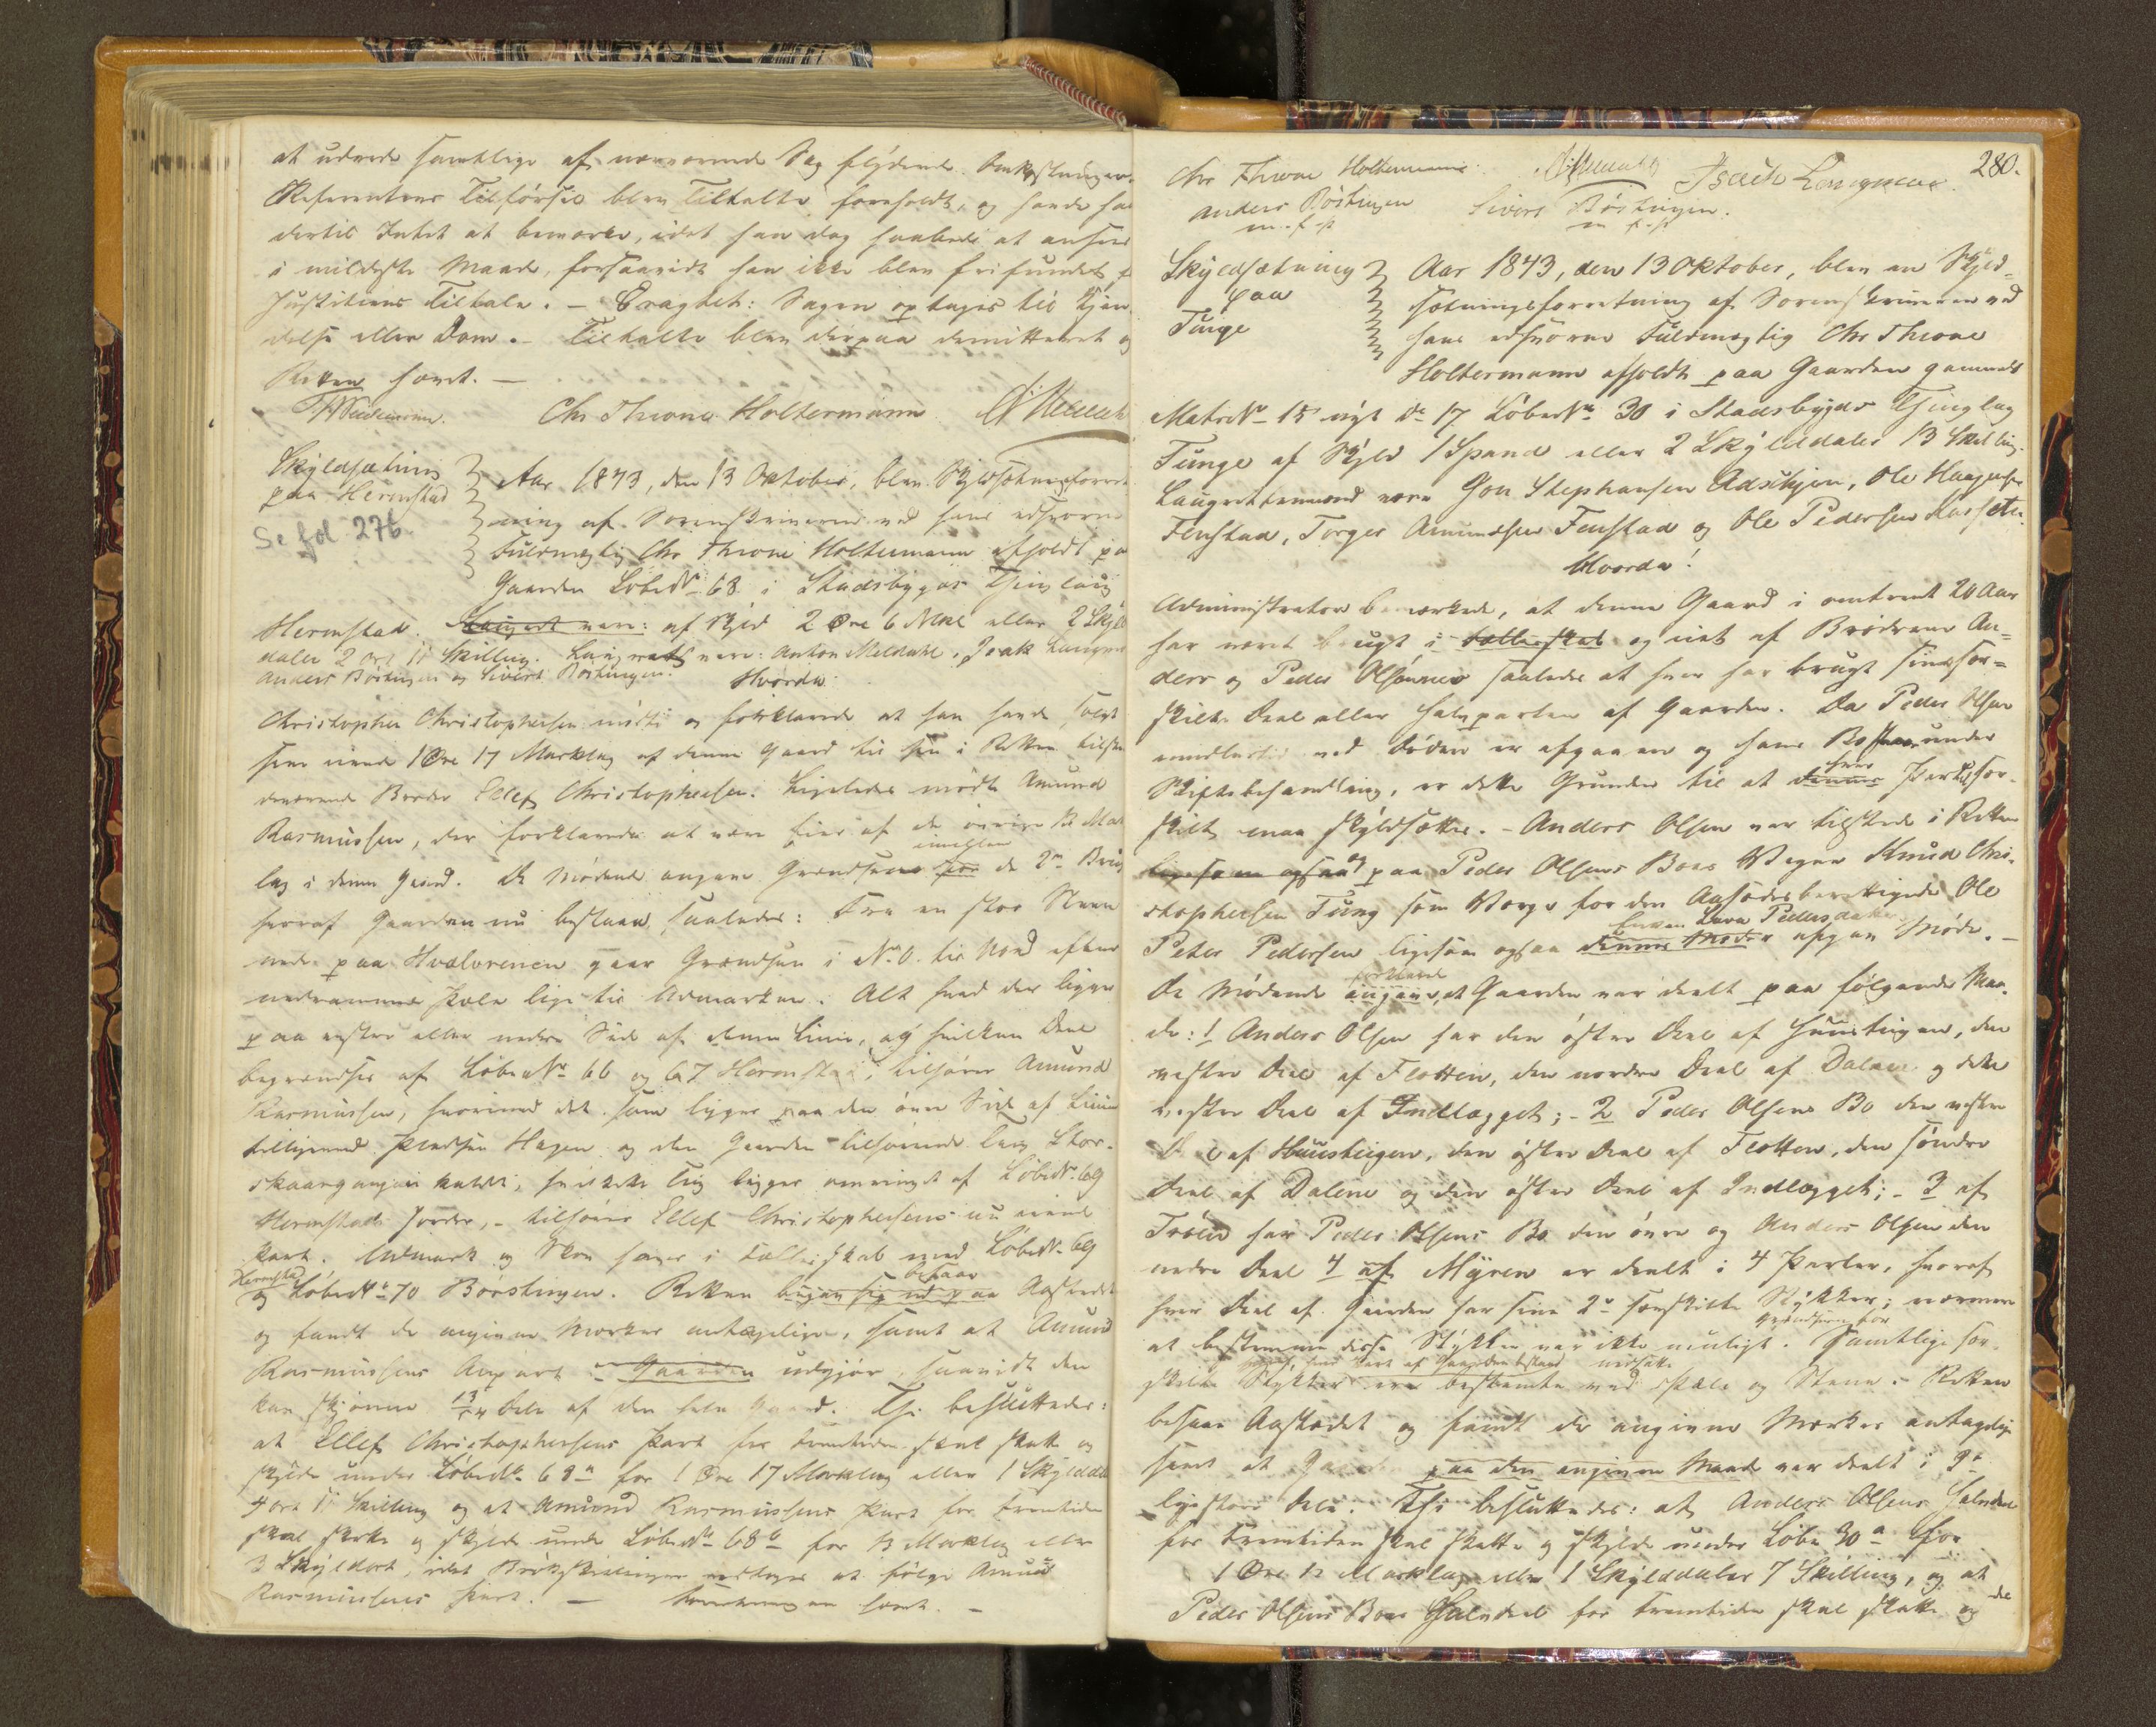 at udrede samtlige af nærværende Sag flydende Omkostninger.
Referentens Tilførsel blev Tiltalte foreholdt, og havde han
dertil Intet at bemærke, idet han dog haabede at ansees
i mildeste Maade, forsaavidt han ikke blev frifunden f
Justitiens Tiltale. – Eragtet: Sagen optages til Kjen
delse eller Dom. – Tiltalte blev derpaa demitteret og
Retten hævet. –
Chr Throne Holtermann
Skyldsætning
paa Hermstad
Se fol 276
Aar 1843, den 13 Oktober, blev Skyldsætningsforret
ning af Sorenskriveren ved hans edsvorne
Fuldmægtig Chr Throne Holtermann afholdt paa
Gaarden Løbe No 68 i Stadsbygds Thinglaug
Hermstad. Laugret vare: af Skyld 2 Øre 6 Mkl eller 2 Skyld
daler 2 ort 11 Skilling. Laugrett vare: Anton Meldahl, Isak Langen
Anders Børstingen og Sivert Børstingen. Hvorda
Christopher Christophersen mødte og forklarede at han havde solgt
sine eiende 1 Øre 17 Marklag af denne Gaard til sin i Retten tilste
deværende Broder Ellef Christophersen. Ligeledes mødte Amund
Rasmussen, der forklarede at være Eier af de øvrige 13 Mark
imellem
lag i denne Gaard. De Mødende angave Grændserne for de 2de Brug
hvoraf Gaarden nu bestaaer saaledes: Fra en stor Steen
nede paa Hvalorenen gaar Grændsen i N.O. til Nord efter
nedrammede Pæle lige til Udmarken. Alt hvad der ligger
paa vestre eller nedre Side af denne Linie, og hvilken Deel
begrændses af Løbe No 66 og 67 Hermstad, tilhører Amund
Rasmussen, hvorimod det som ligger paa den øvre Side af Linien
tilligemed Pladsen Hagen og den Gaarden tilhørende Eng Stor-
skaargangen kaldet, hvilken Eng ligger omringet af Løbe No 69
Hermstads Jorder, – tilhører Ellef Christophersens nu eiende
Part. Udmark og Skov haves i Fælledskab med Løbe No 69
Hermstad
og Løbe No 70 Børstingen. Retten begav sig ud paa Aastedet
besaae
og fandt de angivne Mærker antagelige, samt at Amund
Rasmussens Anpart i Gaarden udgjør saavidt den
kan skjønne 13/54 dele af den hele Gaard. Thi besluttedes:
at Ellef Christophersens Part for Fremtiden skal skatte og
skylde under Løbe No 68a for 1 Øre 17 Marklag eller 1 Skylddal
4 ort 11 Skilling og at Amund Rasmussens Part for Fremtiden
skal skatte og skylde under Løbe No 68b for 13 Marklag eller
3 Skyldort, idet Brøkskillingen vedtoges at følge Amund
Rasmussens Part. – Forretningen hævet. –
280.
Chr Throne Holtermann Isach Langnæs
Anders Börstingen Sivert Börstingen.
m. f. p m f. p
Skyldsætning
paa
Tunge
Aar 1843, den 13 Oktober, blev en Skyld-
sætningsforretning af Sorenskriveren ved
hans edsvorne Fuldmægtig Chr Throne
Holtermann afholdt paa Gaarden gammelt
Matr No 15 nyt do 17 Løbe No 30 i Stadsbygds Thinglag
Tunge af Skyld 1 Spand eller 2 Skylddaler 13 Skilling.
Laugrettesmænd vare Jon Stephansen Adsithjen, Ole Haagensen
Fenstad, Torger Amundsen Fenstad og Ole Pedersen Kasseter.
Hvorda!
Administrator bemærkede, at denne Gaard i omtrent 20 Aar
har været brugt i Fælledskab og eiet af Brødrene An-
ders og Peder Olsønner saaledes at hver har brugt sin sær-
skilte Deel eller Halvparten af Gaarden. Da Peder Olsen
imidlertid ved Døden er afgaaen og hans Bo staaer under
hver
Skiftebehandling, er dette Grunden til at denne Part sær-
skilt maa skyldsættes. – Anders Olsen var tilstede i Retten
og
ligesom ogsaa paa Peder Olsens Boes Vegne Knud Chri-
stophersen Tung som Værge for den Aasædesberettigede Ole
Enken Lava Pedersdatter
Peter Pedersen ligesom ogsaa dennes Moder afgav Møde. –
forklared
De Mødende angave, at Gaarden var deelt paa følgende Maa-
de: 1 Anders Olsen har den østre Deel af Huustugen, den
vestre Deel af Flotten, den nordre Deel af Dalene og den
vestre Deel af Indlægget; – 2 Peder Olsens Bo den vestre
Deel af Huustugen, den østre Deel af Flotten, den søndre
Deel af Dalene og den østre Deel af Indlægget; – 3 af
Trøen har Peder Olsens Bo den øvre og Anders Olsen den
nedre Deel 4 af Myren er deelt i 4 Parter, hvoraf
hver Deel af Gaarden har sine 2de særskilte Stykker; nærmere
Grændserne for
at bestemme disse Stykker var ikke muligt. Samtlige sær-
hvoraf hver Part af Gaarden bestaaer nedsatte
skilte Stykker ere bestemte med Pæle og Stene. Retten
besaae Aastedet og fandt de angivne Mærker antagelige
samt at Gaarden paa den angivne Maade var deelt i 2de
ligestore Dele. Thi besluttedes: at Anders Olsens Halvdeel
for Fremtiden skal skatte og skylde under Løbe 30a for
1 Øre 12 Marklag eller 1 Skylddaler 7 Skilling, og at
Peder Olsens Boes Halvdeel for Fremtiden skal skatte og